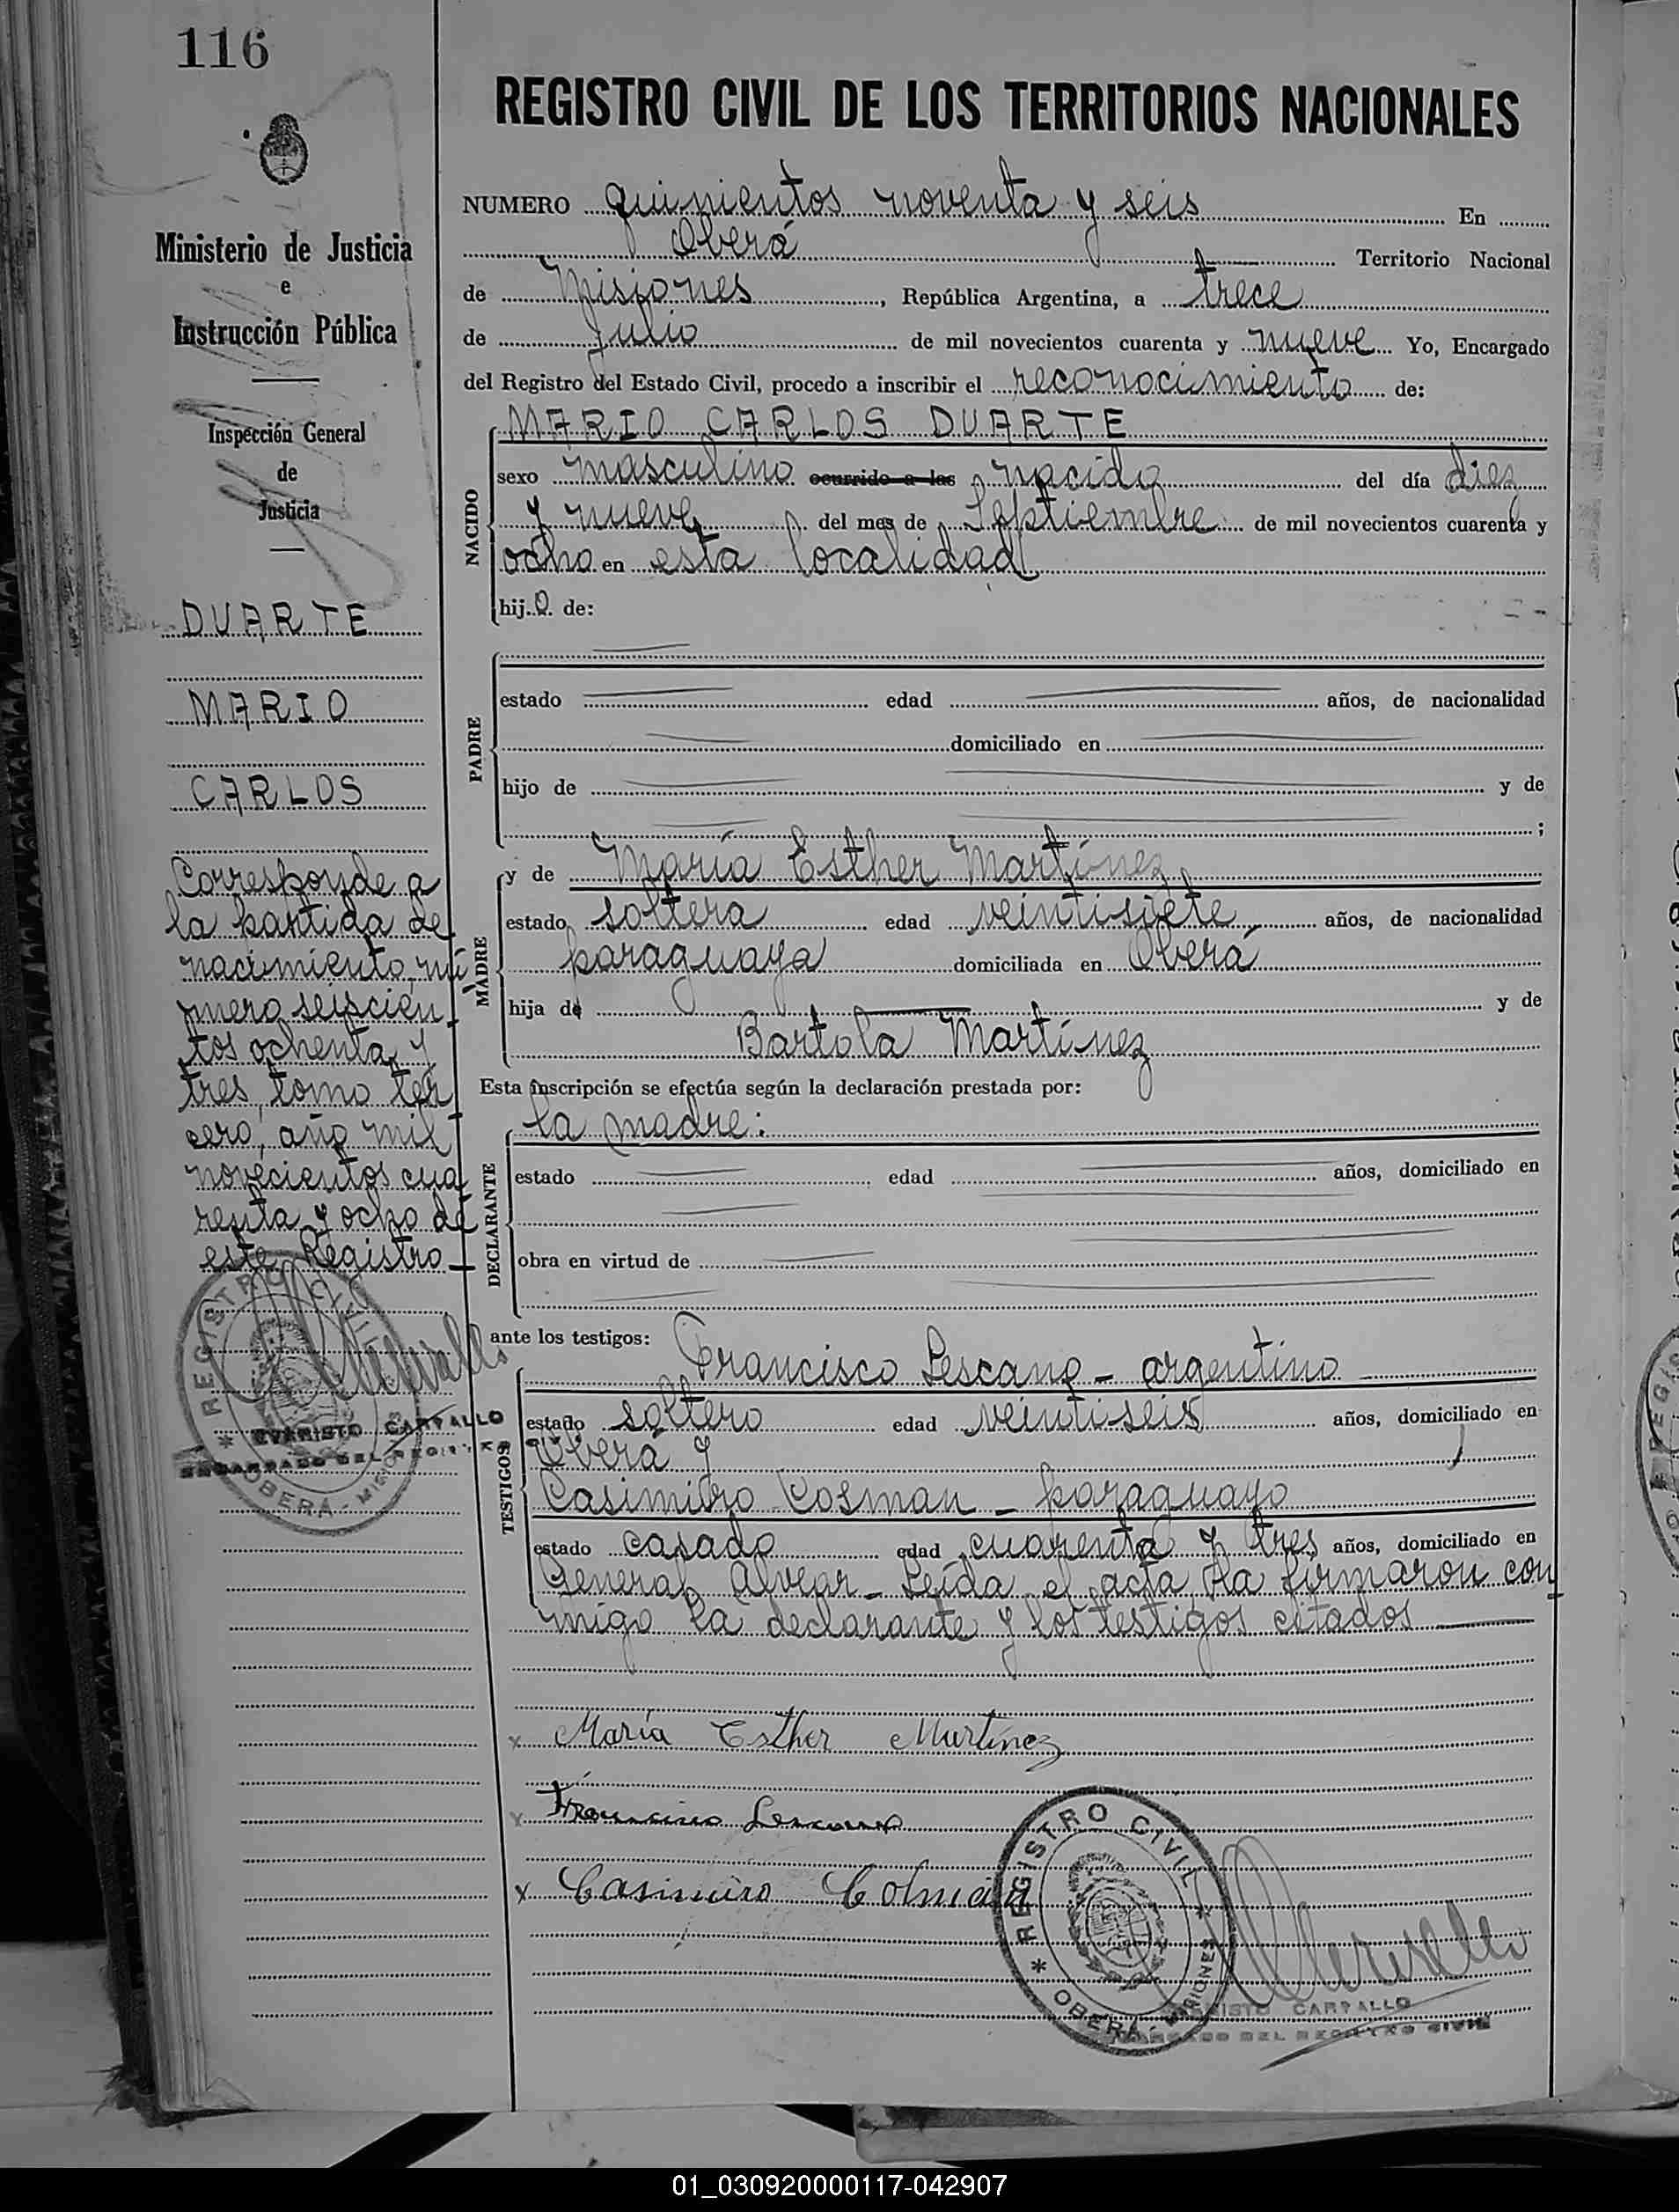 116
Ministerio de Justicia
e
Instrucción Pública
Inspección General
de
Justicia
DUARTE
MARIO
CARLOS
Corresponde a
la partida de
nacimiento nú
mero seiscien
tos ochenta y
tres, tomo ter
cero, año mil
novecientos cua
renta y ocho de
este Registro
REGISTRO CIVIL
EVARISTO CARVALLO
ENCARGADO DEL REGISTRO
OBERÁ - MISIONES
REGISTRO CIVIL DE LOS TERRITORIOS NACIONALES
NUMERO quinientos noventa y seis En
Oberá Territorio Nacional
de Misiones, República Argentina, a trece
de Julio de mil novecientos cuarenta y nueve Yo, Encargado
del Registro del Estado Civil, procedo a inscribir el reconocimiento de:
NACIDO
MARIO CARLOS DUARTE
sexo masculino ocurrido a las nacido del día diez
y nueve del mes de Septiembre de mil novecientos cuarenta y
ocho en esta localidad
hijo de:
PADRE
estado edad años, de nacionalidad
domiciliado en
hijo de y de
;
MADRE
y de María Esther Martínez
estado soltera edad veintisiete años, de nacionalidad
paraguaya domiciliada en Oberá
hija de y de
Bartola Martínez
Esta inscripción se efectúa según la declaración prestada por:
DECLARANTE
la madre:
estado edad años, domiciliado en
obra en virtud de
ante los testigos:
TESTIGOS
Francisco Lescano - argentino
estado soltero edad veintiseis años, domiciliado en
Oberá y
Casimiro Colman - paraguayo
estado casado edad cuarenta y tres años, domiciliado en
General Alvear - Leída el acta la firmaron con
migo la declarante y los testigos citados
x María Esther Martínez
x Francisco Lescano
x Casimiro Colman
REGISTRO CIVIL
OBERÁ - MISIONES
EVARISTO CARVALLO
ENCARGADO DEL REGISTRO CIVIL
01_030920000117-042907